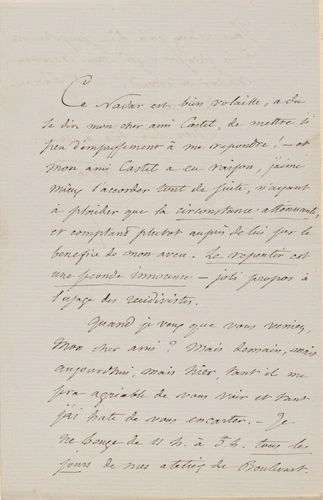 Ce Nadar est bien volaille, a du
se dire mon cher ami Castel, de mettre si
peu d'empressement à me repondre! – et
mon ami Castel a eu raison, j'aime
mieux l'accorder tout de suite, n'ayant
à plaider que la circonstance attenuante,
et comptant plutot auprès de lui sur le
benefice de mon aveu. Le repentir est
une seconde innocence – joli propos à
l'usage des recidivistes.
Quand je veux que vous veniez,
mon cher ami? Mais demain, mais
aujourd'hui, mais hier, tant il me
sera agréable de vous voir et tant
j'ai hate de vous encarter. – Je
ne bouge de 11 h. à 5 h. tous les
jours de nos ateliers du Boulevart.